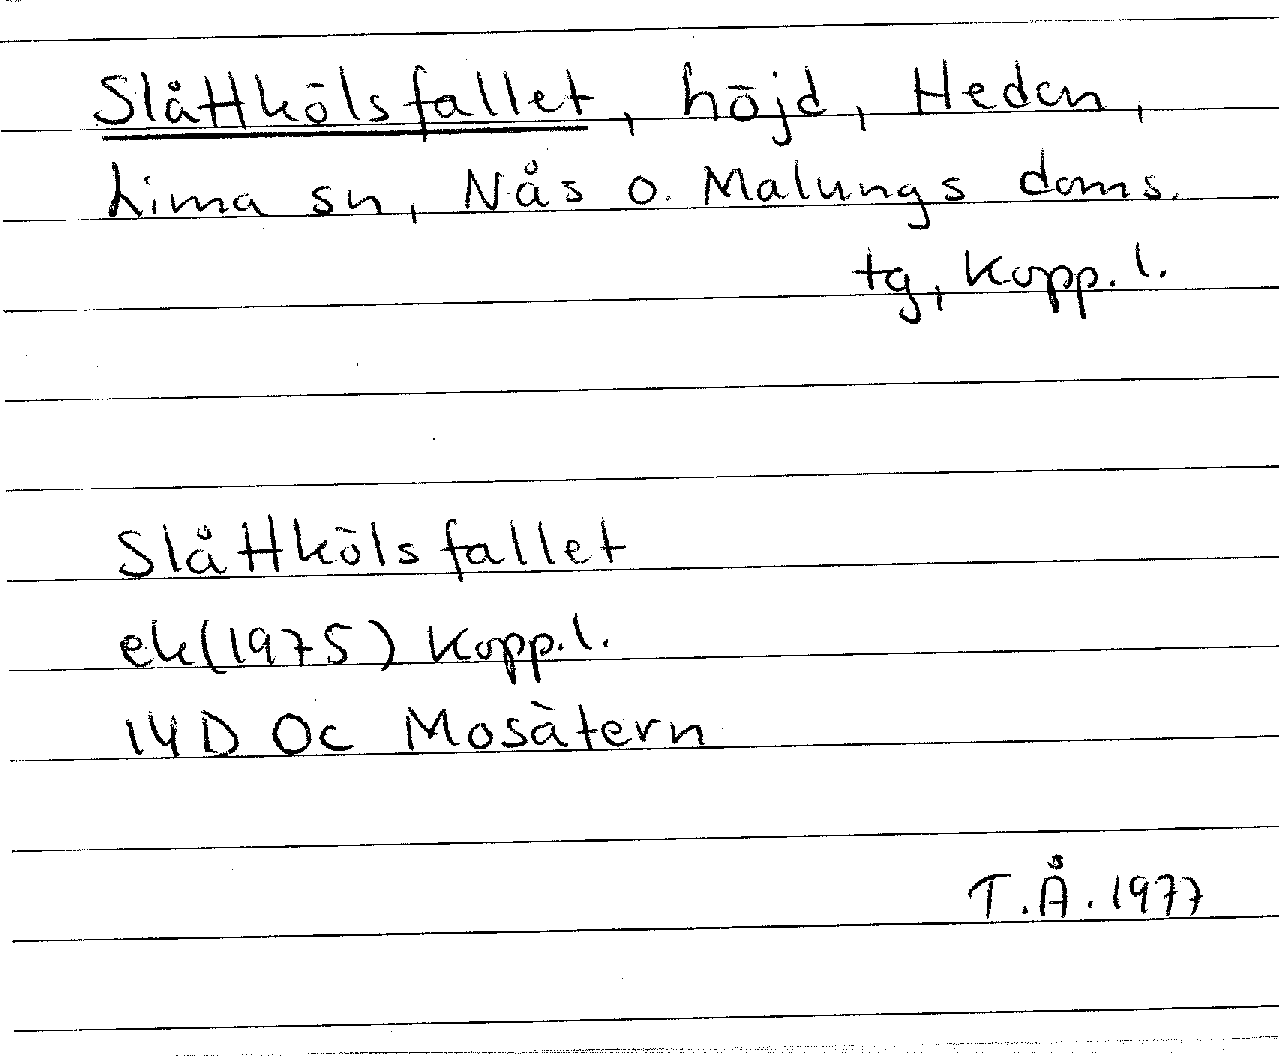 Slåttkölsfallet, höjd, Heden,
Lima sn, Nås o. Malungs doms.
tg, Kopp. l.
Slåttkölsfallet
ek(1975) Kopp.l.
14D 0c Mosätern
T.Å.1977